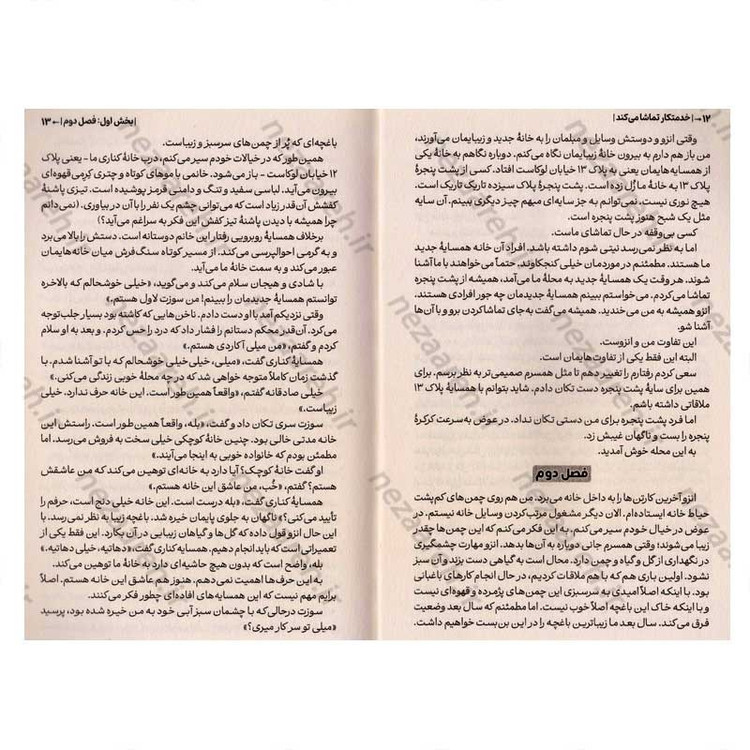 ۱۲ → | خدمتکار تماشا می‌کند |
وقتی انزو و دوستش وسایل و مبلمان را به خانهٔ جدید و زیبایمان می‌آورند،
من باز هم دارم به بیرون خانهٔ زیبایمان نگاه می‌کنم. دوباره نگاهم به خانهٔ یکی
از همسایه‌هایمان یعنی به پلاک ۱۳ خیابان لوکاست افتاد. کسی از پشت پنجرهٔ
پلاک ۱۳ به خانهٔ ما زُل زده است. پشت پنجرهٔ پلاک سیزده تاریک تاریک است.
هیچ نوری نیست. نمی‌توانم به جز سایه‌ای مبهم چیز دیگری ببینم. آن سایه
مثل یک شبح هنوز پشت پنجره است.
کسی بی‌وقفه در حال تماشای ماست.
اما به نظر نمی‌رسد نیتی شوم داشته باشد. افراد آن خانه همسایهٔ جدید
ما هستند. مطمئنم در موردمان خیلی کنجکاوند. حتماً می‌خواهند با ما آشنا
شوند. هر وقت یک همسایهٔ جدید به محلهٔ ما می‌آمد، همیشه از پشت پنجره
تماشا می‌کردم. می‌خواستم ببینم همسایهٔ جدیدمان چه جور افرادی هستند.
انزو همیشه به من می‌خندید. همیشه می‌گفت به‌جای تماشا کردن برو و با آن‌ها
آشنا شو.
این تفاوت من و انزوست.
البته این فقط یکی از تفاوت‌هایمان است.
سعی کردم رفتارم را تغییر دهم تا مثل همسرم صمیمی‌تر به نظر برسم. برای
همین برای سایهٔ پشت پنجره دست تکان دادم. شاید بتوانم با همسایهٔ پلاک ۱۳
ملاقاتی داشته باشم.
اما فرد پشت پنجره برای من دستی تکان نداد. در عوض به‌سرعت کرکرهٔ
پنجره را بست و ناگهان غیبش زد.
به این محله خوش آمدید.
فصل دوم
انزو آخرین کارتن‌ها را به داخل خانه می‌برد. من هم روی چمن‌های کم‌پشت
حیاط خانه ایستاده‌ام. الان دیگر مشغول مرتب‌کردن وسایل خانه نیستم. در
عوض در خیال خودم سیر می‌کنم. به این فکر می‌کنم که این چمن‌ها چقدر
زیبا می‌شوند؛ وقتی همسرم جانی دوباره به آن‌ها بدهد. انزو مهارت چشمگیری
در نگهداری از گل و گیاه و چمن دارد. محال است به گیاهی دست بزند و آن سبز
نشود. اولین باری هم که با هم ملاقات کردیم، در حال انجام کارهای باغبانی
بود. با اینکه اصلاً امیدی به سرسبزی این چمن‌های پژمرده و قهوه‌ای نیست
و با اینکه خاک این باغچه اصلاً خوب نیست. اما مطمئنم که سال بعد وضعیت
فرق می‌کند. سال بعد ما زیباترین باغچه را در این بن‌بست خواهیم داشت.
| بخش اول: فصل دوم | ← ۱۳
باغچه‌ای که پُر از چمن‌های سرسبز و زیباست.
همین‌طور که در خیالات خودم سیر می‌کنم، درب خانهٔ کناری ما - یعنی پلاک
۱۲ خیابان لوکاست - باز می‌شود. خانمی با موهای کوتاه و چتری کِرمی قهوه‌ای
بیرون می‌آید. لباسی سفید و تنگ و دامنی قرمز پوشیده است. تیزی پاشنهٔ
کفشش آن‌قدر زیاد است که می‌توانی چشم یک نفر را با آن در بیاوری. (نمی‌دانم
چرا همیشه با دیدن پاشنهٔ تیز کفش این فکر به سراغم می‌آید؟)
برخلاف همسایهٔ روبرویی رفتار این خانم دوستانه است. دستش را بالا می‌برد
و به گرمی احوالپرسی می‌کند. از مسیر کوتاه سنگ‌فرش میان خانه‌هایمان
عبور می‌کند و به سمت خانهٔ ما می‌آید.
با شادی و هیجان سلام می‌کند و می‌گوید، «خیلی خوشحالم که بالاخره
توانستم همسایهٔ جدیدمان را ببینم! من سوزت لاول هستم.»
وقتی نزدیکم آمد با او دست دادم. ناخن‌هایی که کاشته بود بسیار جلب‌توجه
می‌کرد. آن‌قدر محکم دستانم را فشار داد که درد را حس کردم. و بعد به او سلام
کردم و گفتم، «من میلی آکاردی هستم.»
همسایهٔ کناری گفت، «میلی، خیلی خیلی خوشحالم که با تو آشنا شدم. با
گذشت زمان کاملاً متوجه خواهی شد که در چه محلهٔ خوبی زندگی می‌کنی.»
خیلی صادقانه گفتم، «واقعاً همین‌طور است. این خانه حرف ندارد. خیلی
زیباست.»
سوزت سری تکان داد و گفت، «بله، واقعاً همین‌طور است. راستش این
خانه مدتی خالی بود. چنین خانهٔ کوچکی خیلی سخت به فروش می‌رسد. اما
مطمئن بودم که خانواده خوبی به اینجا می‌آیند.»
او گفت خانهٔ کوچک؟ آیا دارد به خانه‌ای توهین می‌کند که من عاشقش
هستم؟ گفتم، «خُب، من عاشق این خانه هستم.»
همسایهٔ کناری گفت، «بله درست است. این خانه خیلی دنج است، حرفم را
تأیید می‌کنی؟» ناگهان به جلوی پایمان خیره شد. باغچه زیبا به نظر نمی‌رسد. با
این حال انزو قول داده که گل‌ها و گیاهان زیبایی در آن بکارد. این فقط یکی از
تعمیراتی است که باید انجام دهیم. همسایه کناری گفت، «دهاتیه. خیلی دهاتیه.»
بله، واضح است که بدون هیچ حاشیه‌ای دارد به خانهٔ ما توهین می‌کند.
به این حرف‌ها اهمیت نمی‌دهم. هنوز هم عاشق این خانه هستم. اصلاً
برایم مهم نیست که این همسایه‌های افاده‌ای چطور فکر می‌کنند.
سوزت درحالی‌که با چشمان سبز آبی خود به من خیره شده بود، پرسید
«میلی تو سر کار میری؟»